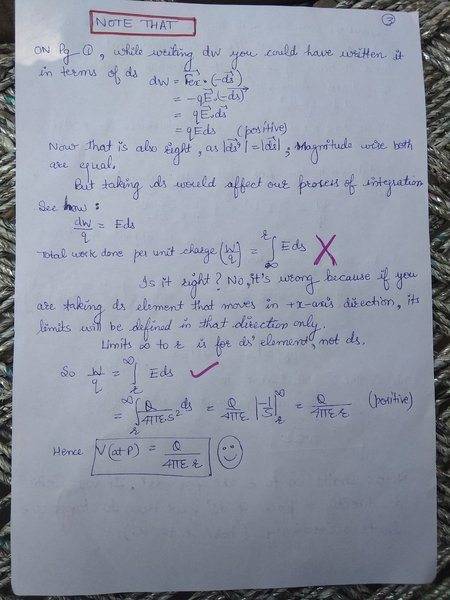 NOTE THAT
3
ON Pg ①, while writing dW you could have written it
in terms of ds
dW = F⃗ex · (-ds⃗)
= -qE⃗ · (-ds⃗)
= qE⃗ · ds⃗
= qEds (positive)
Now that is also right, as |ds⃗'| = |ds⃗|, Magnitude wise both
are equal.
But taking ds would affect our process of integration
See how :
dW/q = Eds
Total work done per unit charge (W/q) = ∫_∞^r Eds ✗
Is it right? No, it's wrong because if you
are taking ds element that moves in +x-axis direction, its
limits will be defined in that direction only.
Limits ∞ to r is for ds' element, not ds.
So W/q = ∫_r^∞ Eds ✓
= ∫_r^∞ Q/4πε₀s² ds = Q/4πε₀ |-1/s|_r^∞ = Q/4πε₀r (positive)
Hence V(at P) = Q/4πε₀r ☺